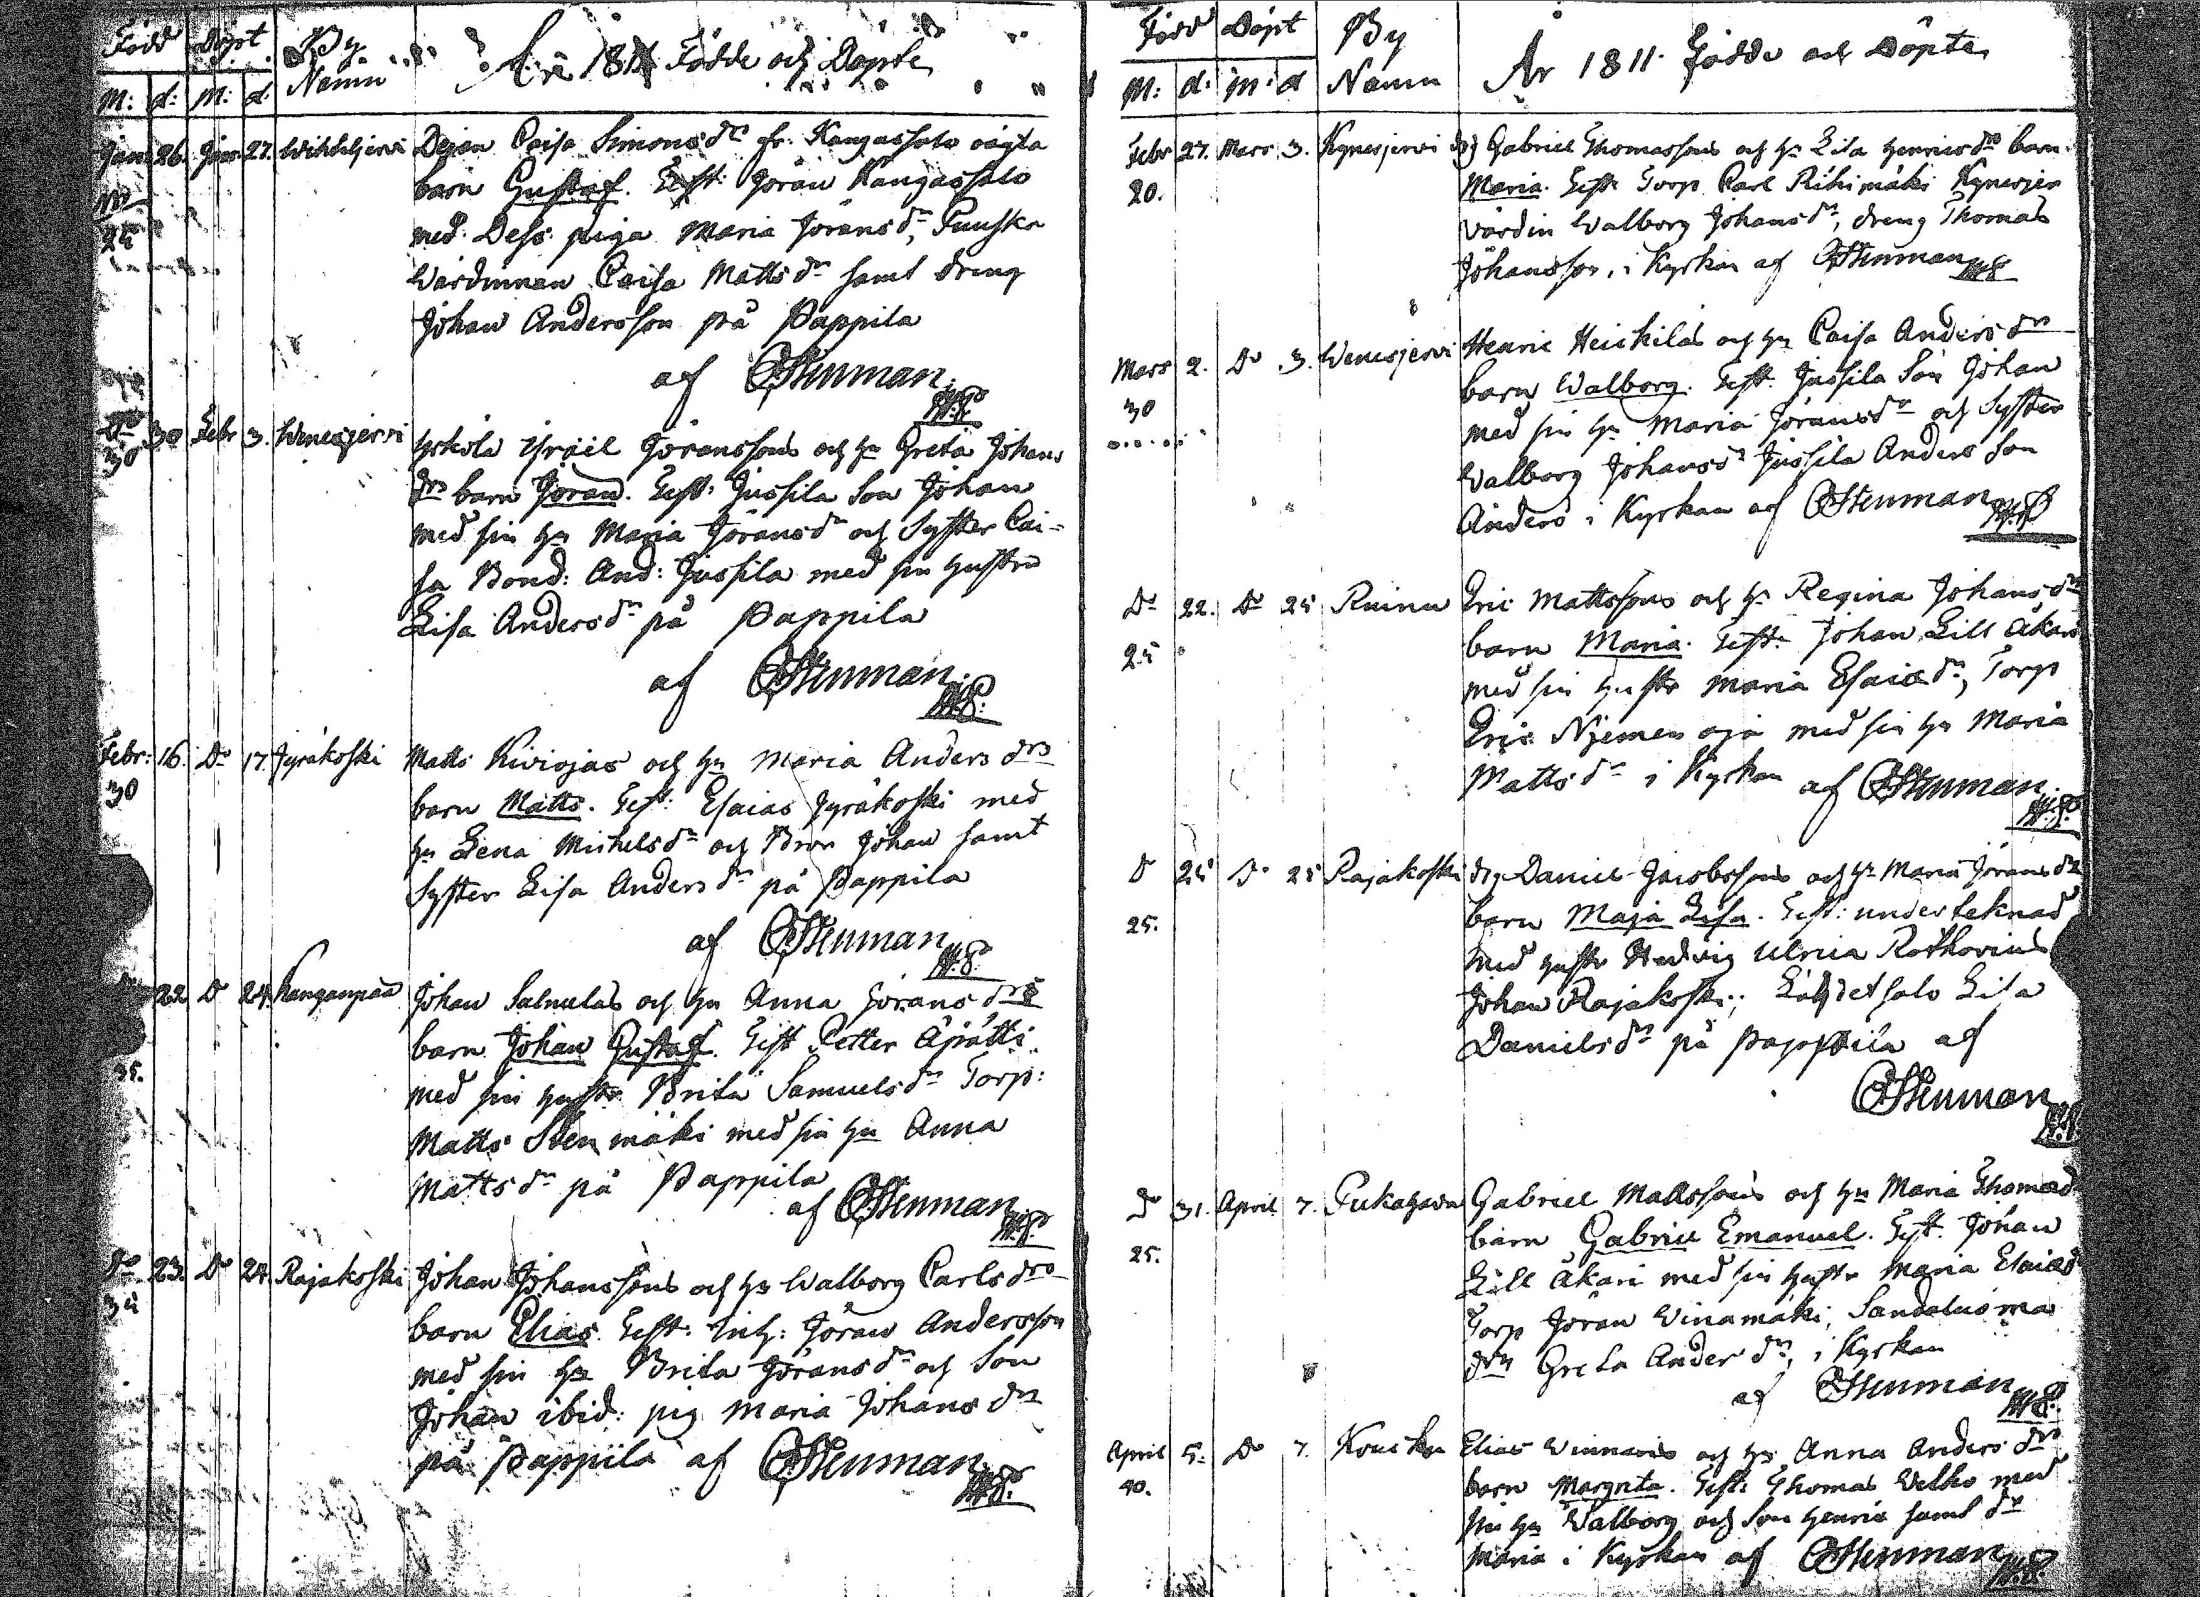 Född Döpt By Namn År 1811 Födde och Döpte
M: d: M: d.
Janu 26. Janu 27. Wihteljerwi Dejan Caisa Simonsdr fr. Kangassalo oägta
barn Gustaf. Test: Jöran Kangassalo
med Dess piga Maria Jöransdr,
Wärdinnan Caisa Mattsdr samt dreng
Johan Andersson på Pappila
af CStenman
Do 30 Febr 3. Wenesjerwi Yrkölä Israel Göranssons och hu Greta Johans
30
drs barn Jöran. Test: Jussila Son Johan
med sin hu Maria Jöransdr och Syster Cai-
sa Bond: And: Jussila med sin hustru
Lisa Andersdr på Pappila
af CStenman.
Febr: 16. Do 17. Jyräkoski Matts Kiviojas och hu Maria Anders drs
30
barn Matts. Test: Esaias Jyräkoski med
hu Lena Michelsdr och Bror Johan samt
Syster Lisa Andersdr på Pappila
af CStenman
22. Do 24. Kanganpää Johan Salmelas och hu Anna Jörans drs
barn Johan Gustaf. Test Petter Äjätti
35.
med sin hustr Brita Samuelsdr Torp:
Matts Stenmäki med sin hu Anna
Mattsdr på Pappila
af CStenman
Do 23. Do 24. Rajakoski Johan Johanssons och hu Walborg Carls drs
barn Elias. Test: Inh: Jöran Andersson
med sin hu Brita Jöransdr och Son
Johan ibid: pig Maria Johans dr
på Pappila af CStenman
Född Döpt By Namn År 1811. Födde och Döpte
M: d: m: d
Febr 27. Mars 3. Kynesjerwi Gabriel Thomassons och hu Lisa Henricsdrs barn
20.
Maria. Test: Torp. Carl Riihimäki Kynesjer
värdin Walborg Johansdr, dreng Thomas
Johansson, i Kyrkan af CStenman
Mars 2. Do 3. Wenesjerwi Henric Heickiläs och hu Caisa Anders drs
30
barn Walborg. Test: Jussila Son Johan
med sin hu Maria Jöransdr och Syster
Walborg Johansdr Jussila Anders Son
Anders i Kyrkan af CStenman
Do 22. Do 25 Ruinu Eric Mattssons och hu Regina Johansdrs
25
barn Maria. Test: Johan Lill Äkäri
med sin hustr Maria Esaiædr, Torp
Eric Njemen oja med sin hu Maria
Mattsdr i Kyrkan af CStenman.
D 24 Do 25 Rajakoski drg Daniel Jacobssons och hu Maria Jöransdrs
25.
barn Maja Lisa. Test: underteknad
med hustr Hedvig Ulrica Rothovius
Johan Rajakoski; Lähdetsalo Lisa
Danielsdr på Pappila af
CStenman
Do 31. April 7. Pukahava Gabriel Mattssons och hu Maria Thomæd
25.
barn Gabriel Emanuel. Test. Johan
Lill Äkäri med sin hustr Maria Esaiæd
Torp Jöran Winamäki, Sandaluoma
drn Greta Anderdr, i Kyrkan
af CStenman
April 5. Do 7. Kouckn Elias Winnaris och hu Anna Anders drs
40.
barn Margreta. Test: Thomas Welho med
sin hu Walborg och Son Henric samt dr
Maria i Kyrkan af CStenman